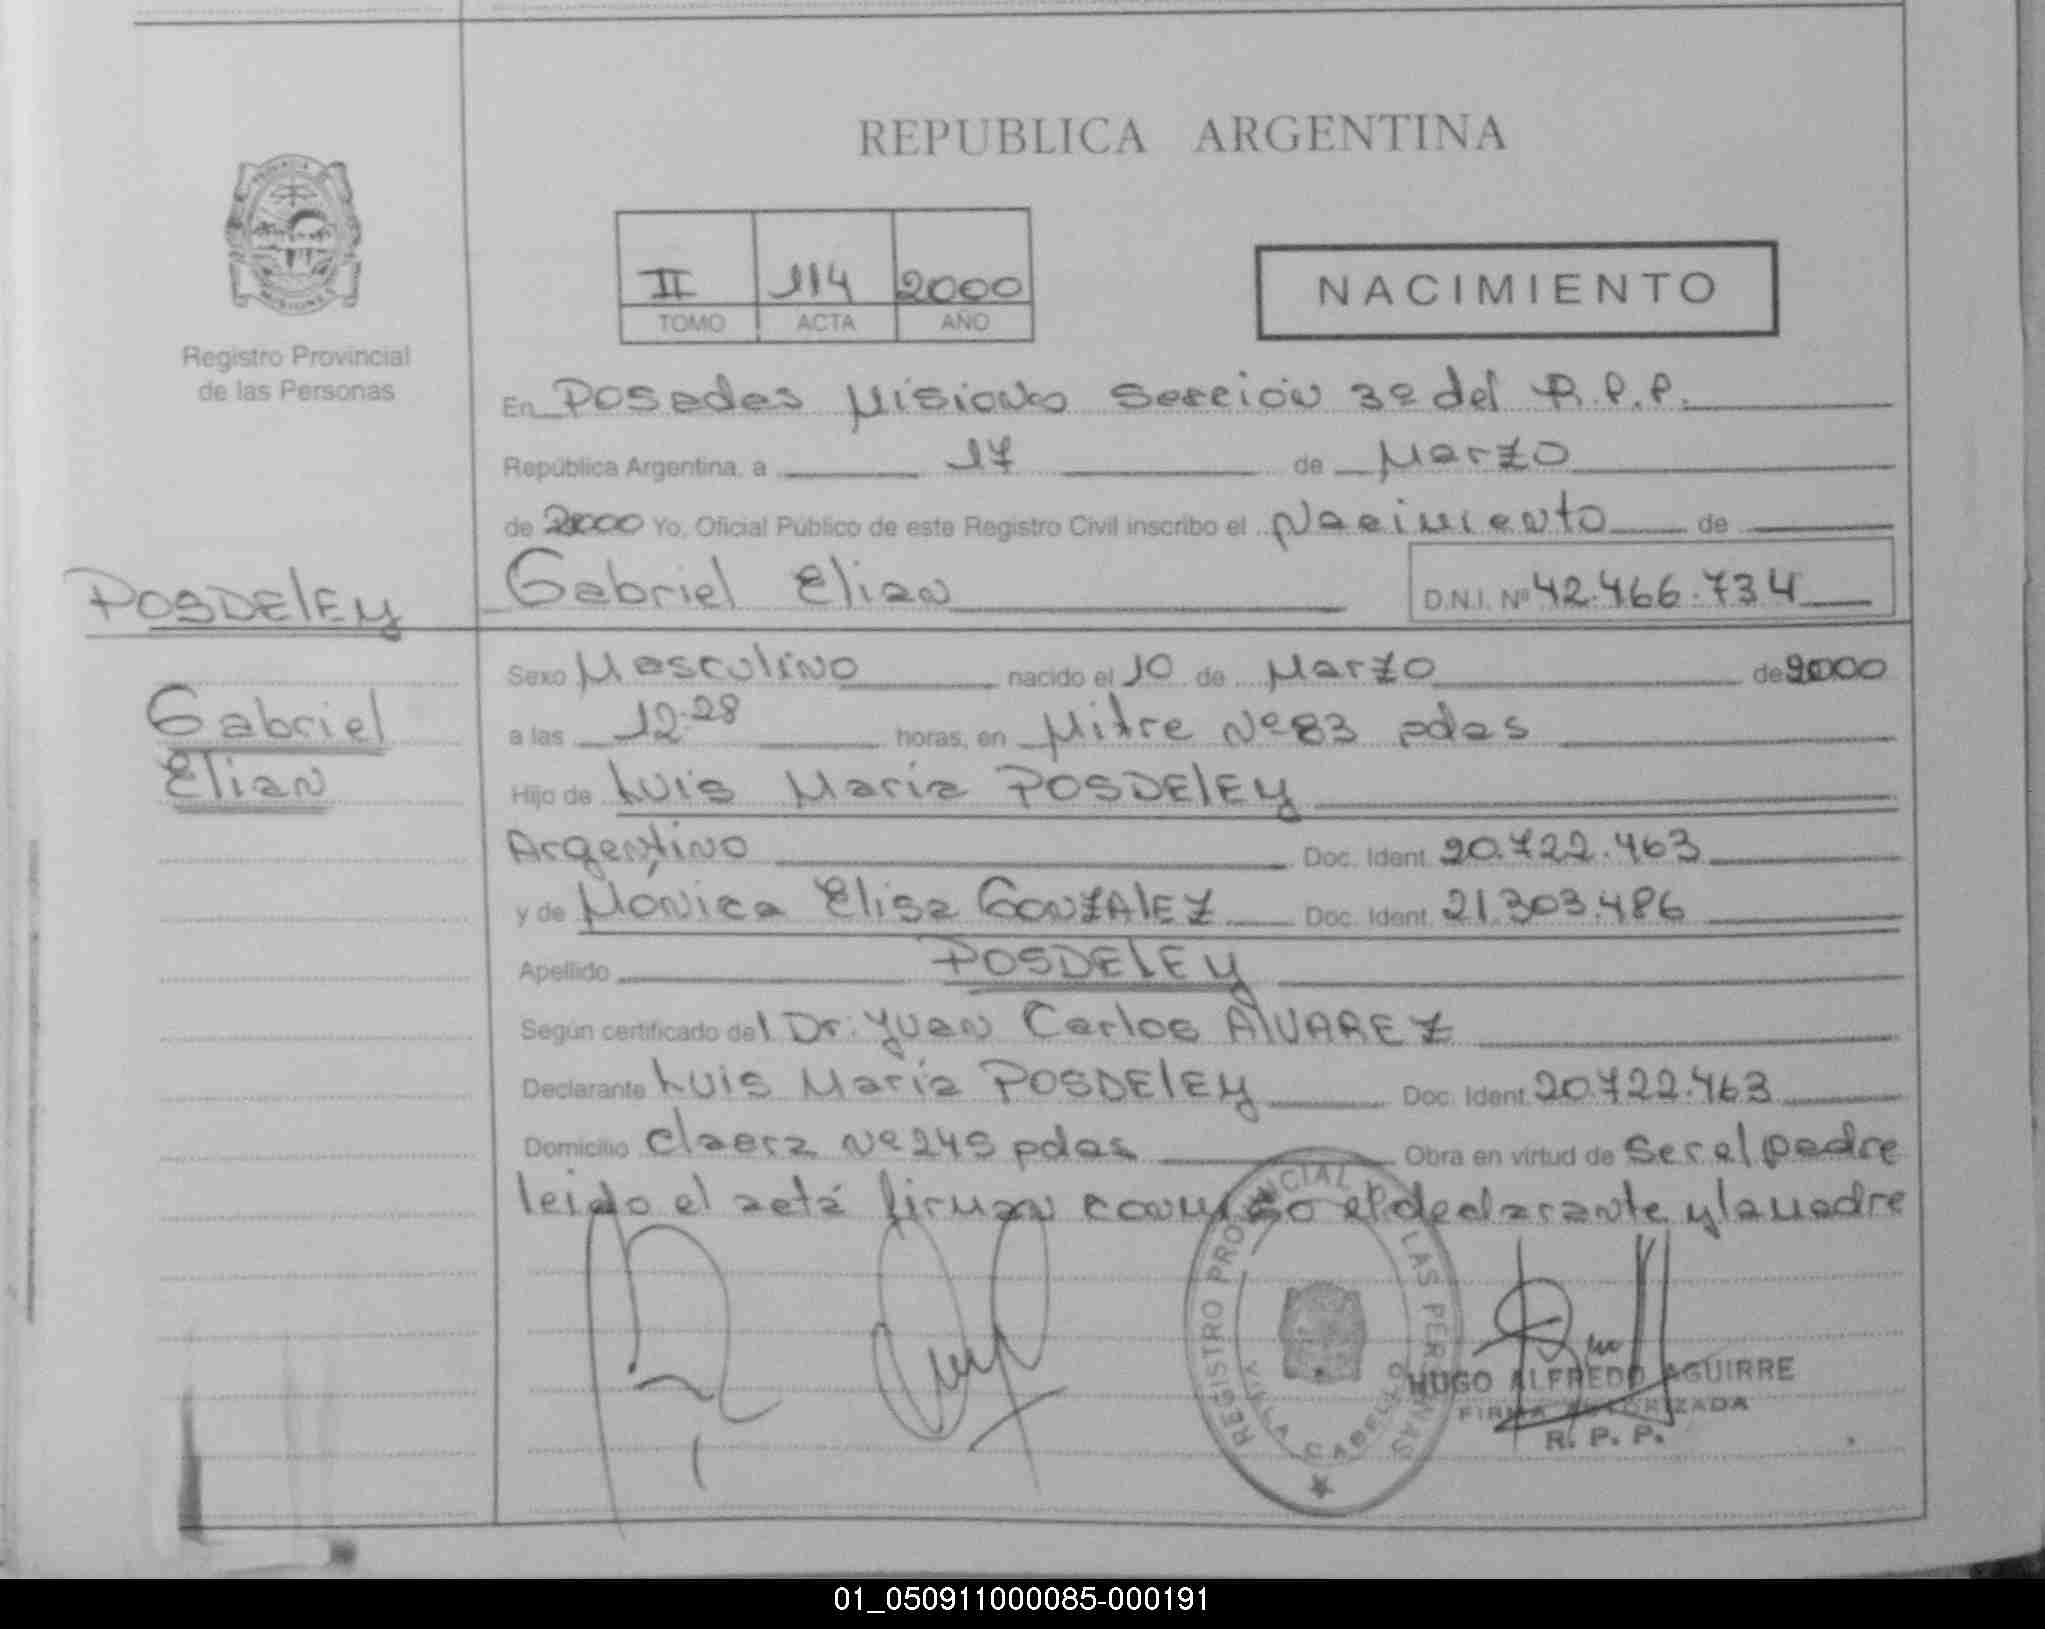 REPUBLICA ARGENTINA
II 114 2000
TOMO ACTA AÑO
NACIMIENTO
Registro Provincial
de las Personas
En Posadas Misiones Sección 3º del R.P.P.
República Argentina, a 17 de Marzo
de 2000 Yo, Oficial Público de este Registro Civil inscribo el Nacimiento de
POSDELEY
Gabriel Elian D.N.I. Nº 42.466.734
Gabriel
Elian
Sexo Masculino nacido el 10 de Marzo de 2000
a las 12.28 horas, en Mitre Nº 83 pdas
Hijo de Luis María POSDELEY
Argentino Doc. Ident. 20.722.463
y de Mónica Elisa GONZALEZ Doc. Ident. 21.303.486
Apellido POSDELEY
Según certificado del Dr. Juan Carlos ALVAREZ
Declarante Luis María POSDELEY Doc. Ident. 20.722.463
Domicilio Nº 245 pdas Obra en virtud de ser el padre
leido el acta firman conmigo el declarante y la madre
REGISTRO PROVINCIAL LAS PERSONAS
VILLA CABELLO
HUGO ALFREDO AGUIRRE
FIRMA AUTORIZADA
R. P. P.
01_050911000085-000191